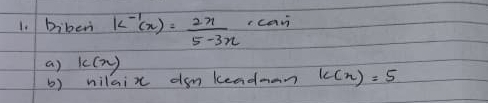 1. Diberi k⁻¹(x) = 2x / 5-3x , cari
a) k(x)
b) nilai x dgn keadaan k(x) = 5